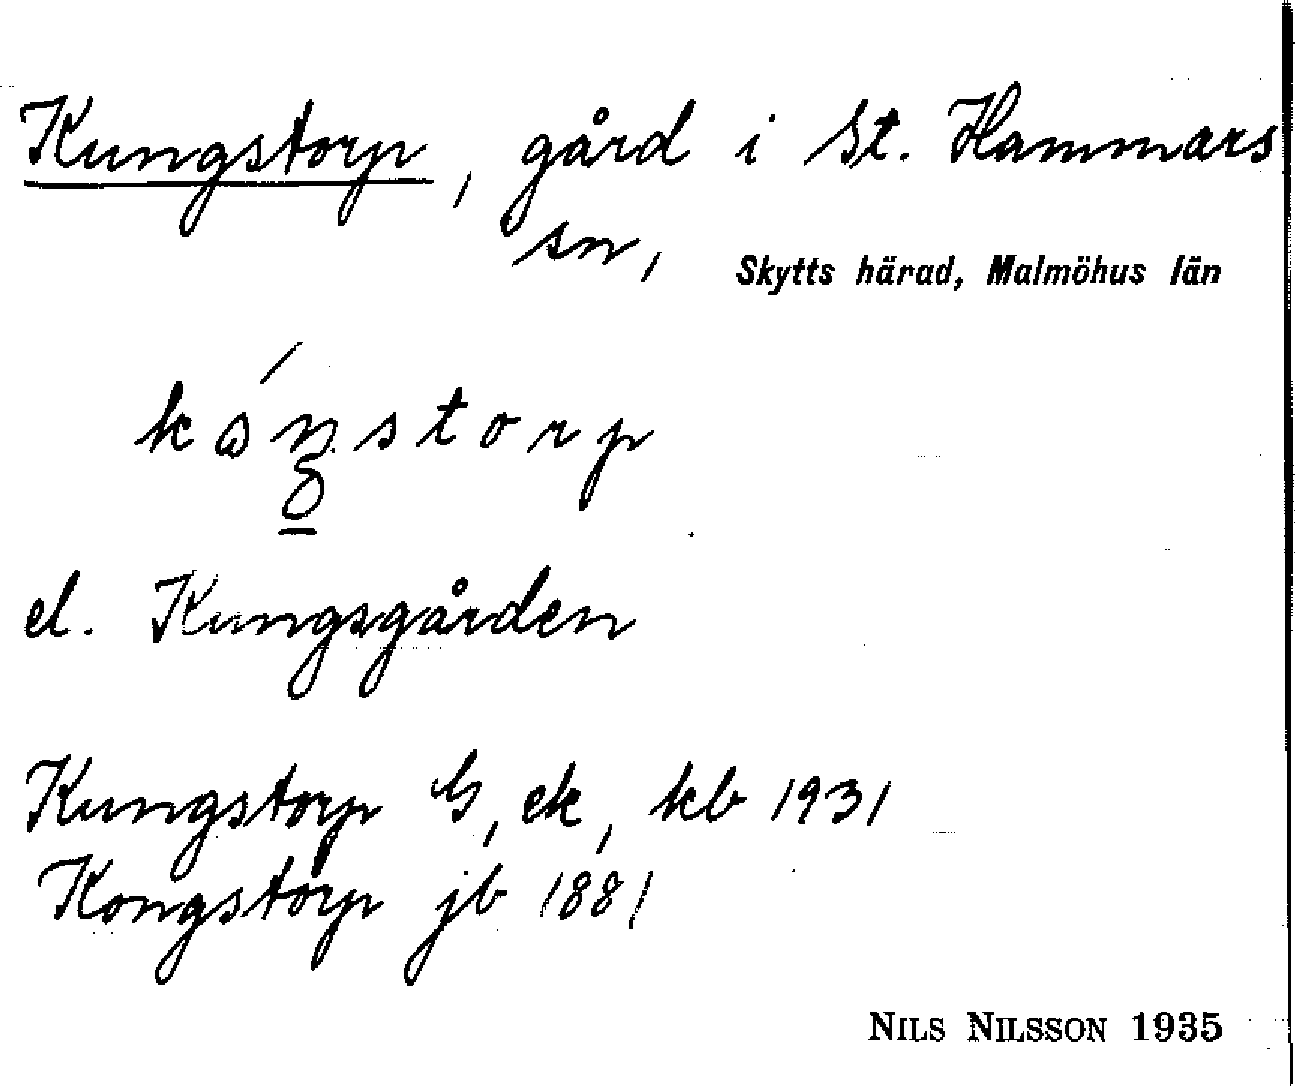 Kungstorp, gård i St. Hammars
sn, Skytts härad, Malmöhus län
el. Kungsgården
Kungstorp G, ek, kb 1931
Kongstorp jb 1881
NILS NILSSON 1935